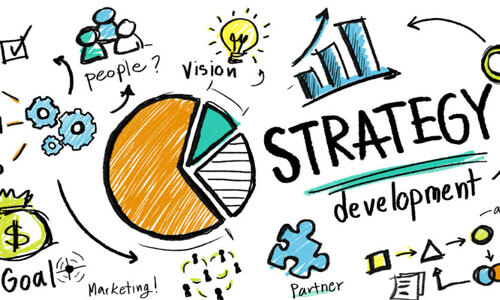 people?
Vision
STRATEGY
development
$
Goal
Marketing!
Partner